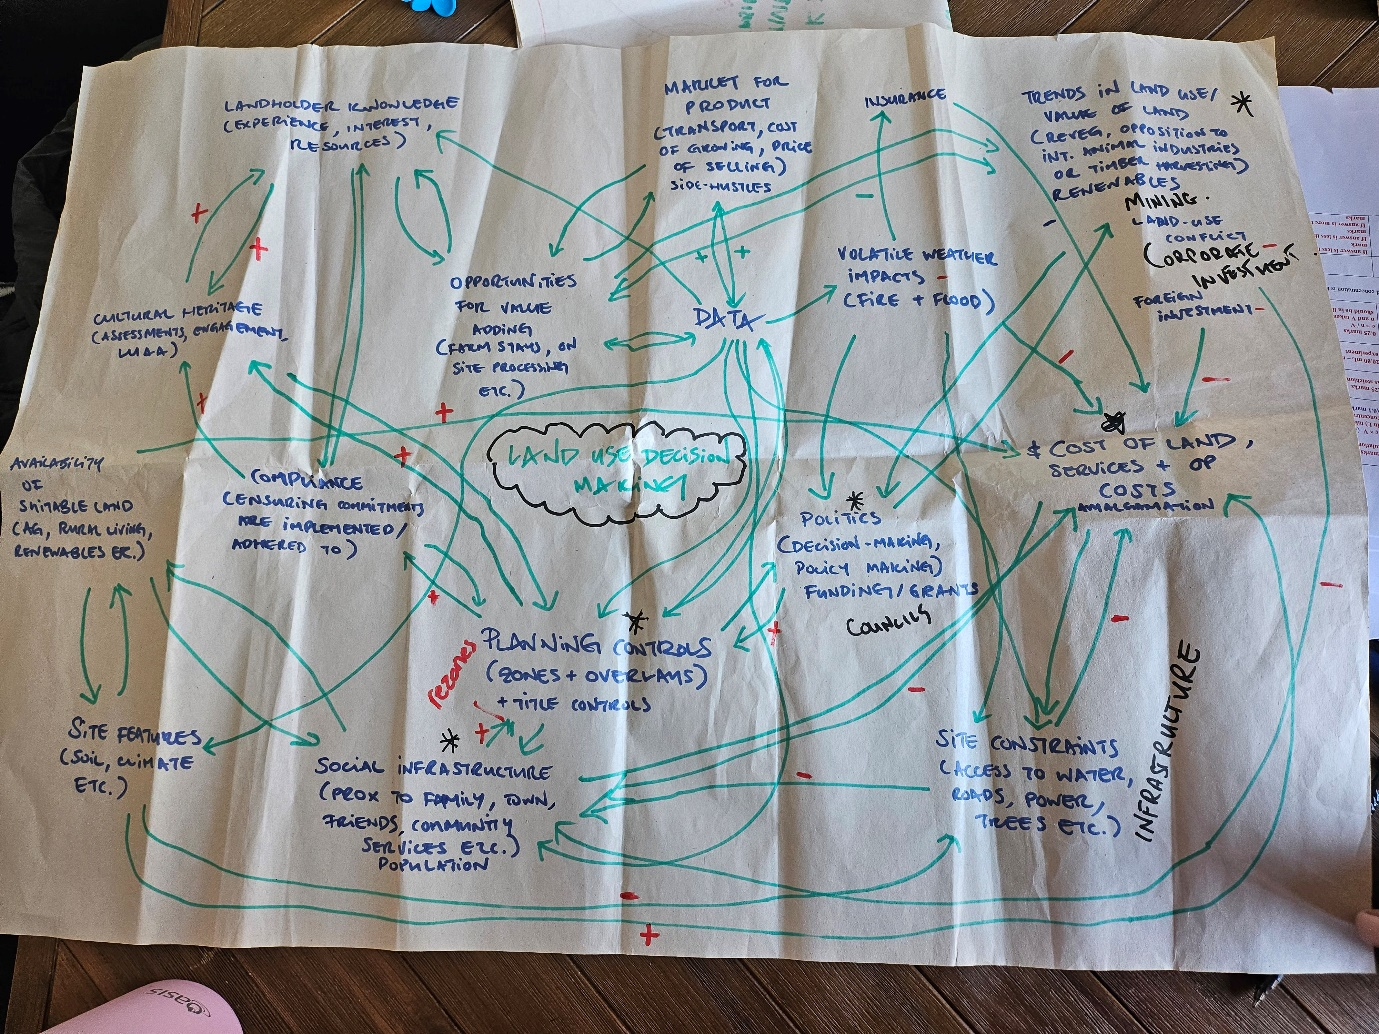 LANDHOLDER KNOWLEDGE
(EXPERIENCE, INTEREST,
RESOURCES)
MARKET FOR
PRODUCT
(TRANSPORT, COST
OF GROWING, PRICE
OF SELLING)
SIDE-HUSTLES
INSURANCE
TRENDS IN LAND USE/
VALUE OF LAND
(REVEG, OPPOSITION TO
INT. ANIMAL INDUSTRIES
OR TIMBER HARVESTING)
RENEWABLES
MINING.
LAND-USE
CONFLICT
CORPORATE
INVESTMENT
FOREIGN
INVESTMENT
CULTURAL HERITAGE
(ASSESSMENTS, ENGAGEMENT,
OPPORTUNITIES
FOR VALUE
ADDING
(FARM STAYS, ON
SITE PROCESSING
ETC.)
DATA
VOLATILE WEATHER
IMPACTS
(FIRE + FLOOD)
LAND USE DECISION
MAKING
AVAILABILITY
OF
SUITABLE LAND
(AG, RURAL LIVING,
RENEWABLES ETC.)
COMPLIANCE
(ENSURING COMMITMENTS
ARE IMPLEMENTED/
ADHERED TO)
POLITICS
(DECISION-MAKING,
POLICY MAKING)
FUNDING/GRANTS
COUNCILS
$ COST OF LAND,
SERVICES + OP
COSTS
AMALGAMATION
rezones
PLANNING CONTROLS
(ZONES + OVERLAYS)
+ TITLE CONTROLS
SITE FEATURES
(SOIL, CLIMATE
ETC.)
SOCIAL INFRASTRUCTURE
(PROX TO FAMILY, TOWN,
FRIENDS, COMMUNITY
SERVICES ETC.)
POPULATION
SITE CONSTRAINTS
(ACCESS TO WATER,
ROADS, POWER,
TREES ETC.)
INFRASTRUCTURE
OASIS